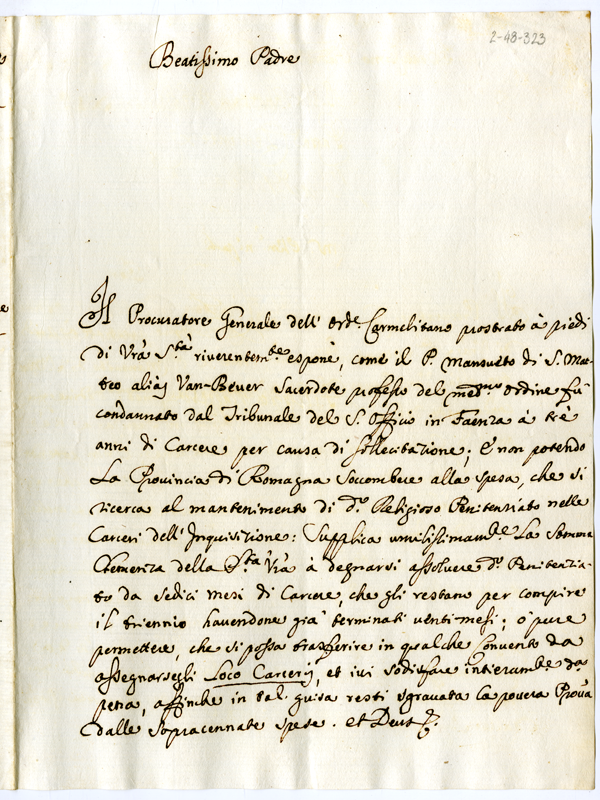 2-48-323
Beatissimo Padre
Il Procuratore Generale dell' Ord.e Carmelitano prostrato à piedi
di V̄r̄a S.tà riverentem.te espone, come il P. Mansueto di S. Mat-
teo alias Van-Bever Sacerdote professo del med.mo Ordine fù
condannato dal Tribunale del S. Officio in Faenza à trè
anni di Carcere per causa di sollecitazione; E non potendo
La Provincia di Romagna soccombere alla spesa, che si
ricerca al mantenimento di d.o Religioso Penitenziato nelle
Carceri dell' Inquisizione: Supplica umilissimam.te La Somma
Clemenza della S.tà V̄r̄a à degnarsi assolvere d.o Penitenzia-
to da sedici mesi di Carcere, che gli restano per compire
il triennio havendone già terminati venti mesi; ò pure
permettere, che si possa trasferire in qualche Convento da
assegnarsegli Loco Carceris, et ivi sodisfare interam.te d.a
pena, affinche in tal guisa resti sgravata la povera Prov̄a
dalle sopracennate spese. et Deus